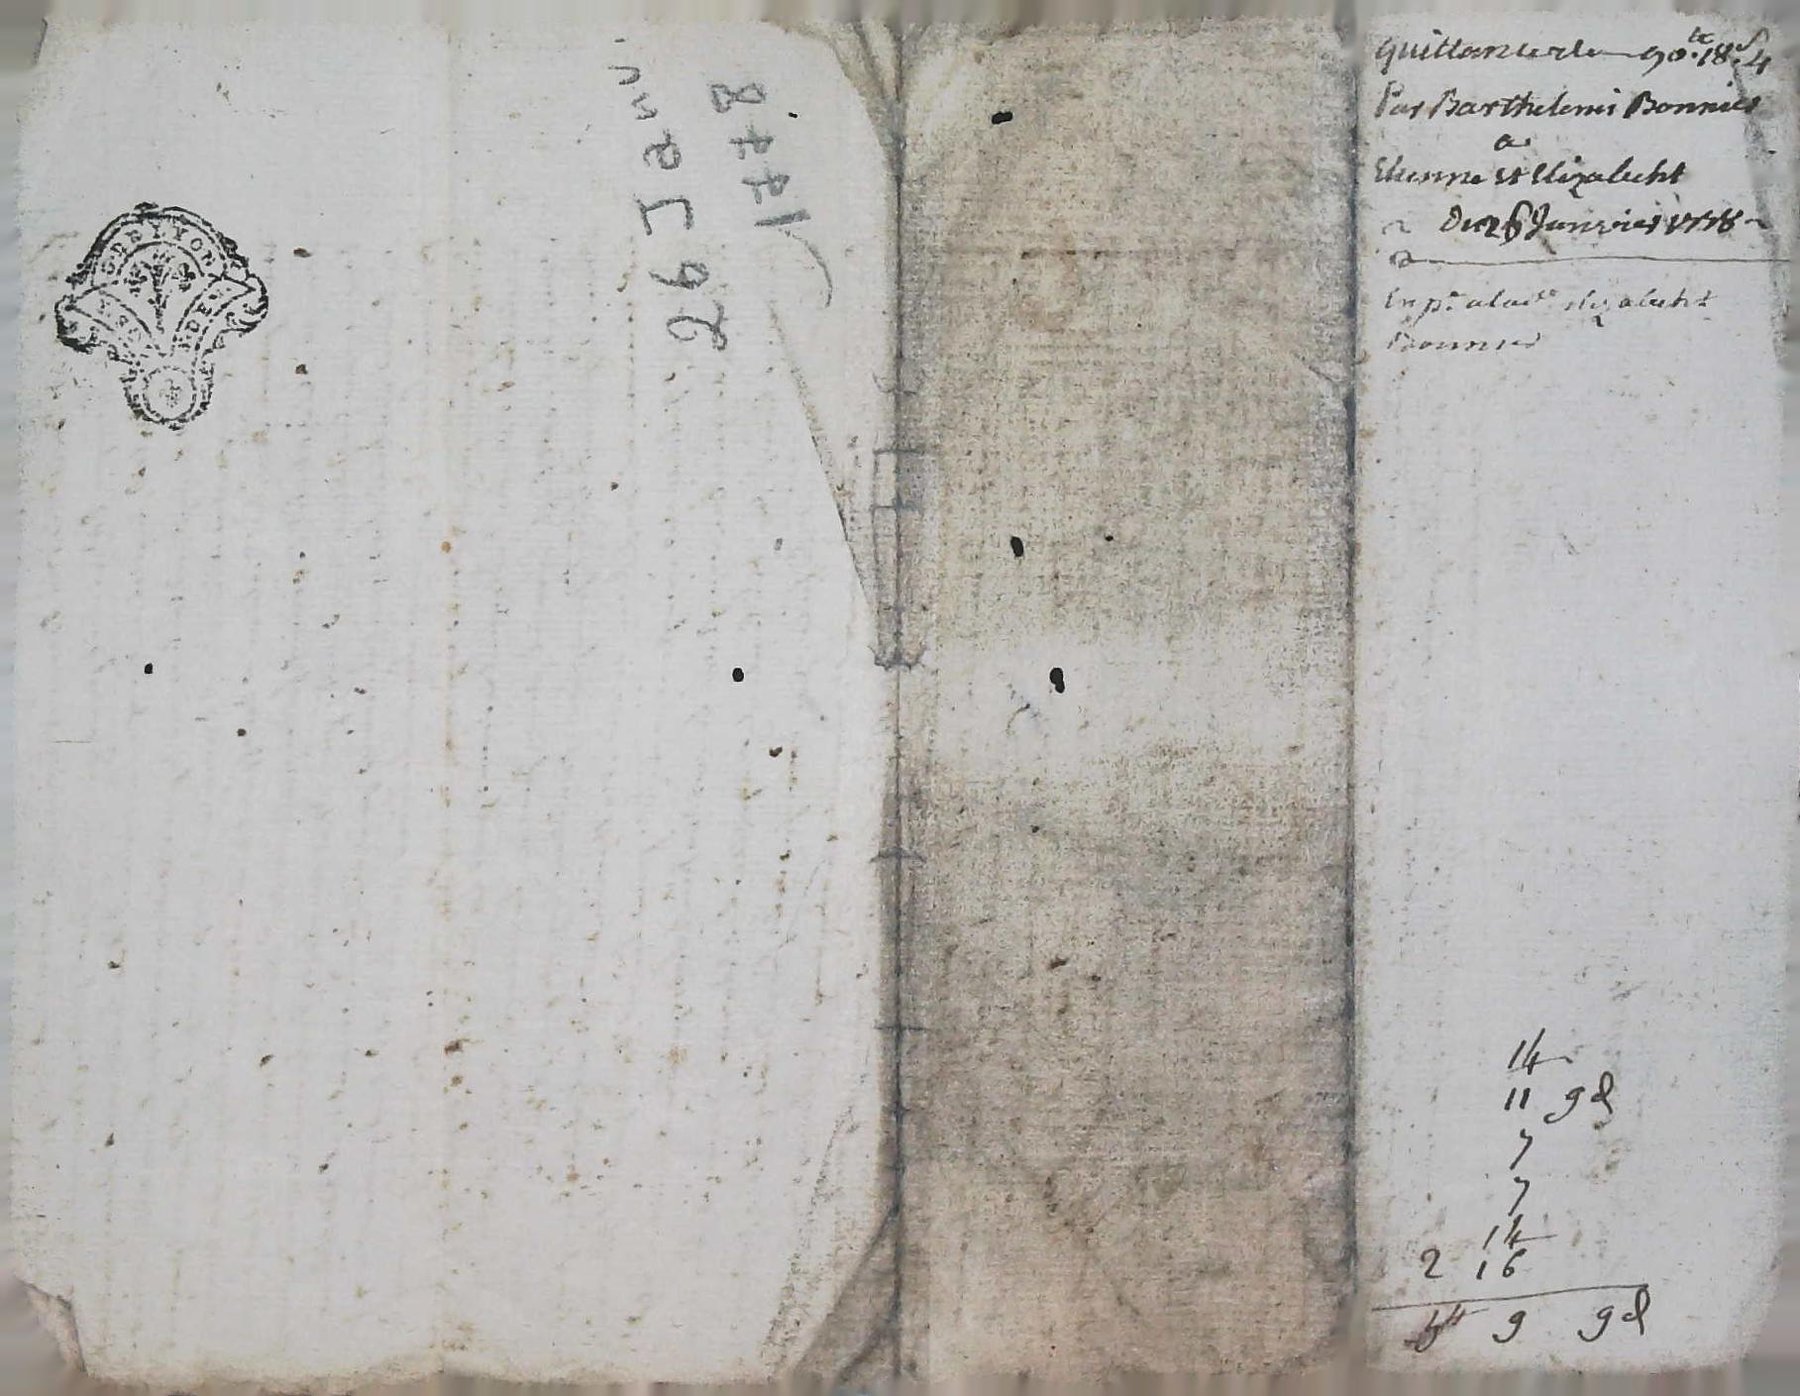 GEN DE LYON
DEN
26 Janv
1778
quittance de 90.tt 18.s 4
Par Barthelemi Bonnier
a
Etienne et Elizabeht
Du 26 Janvier 1778
En p.r a lad.te elizabeht
Bonnier
14
11 9 d
7
7
14
2 16
9 9 d